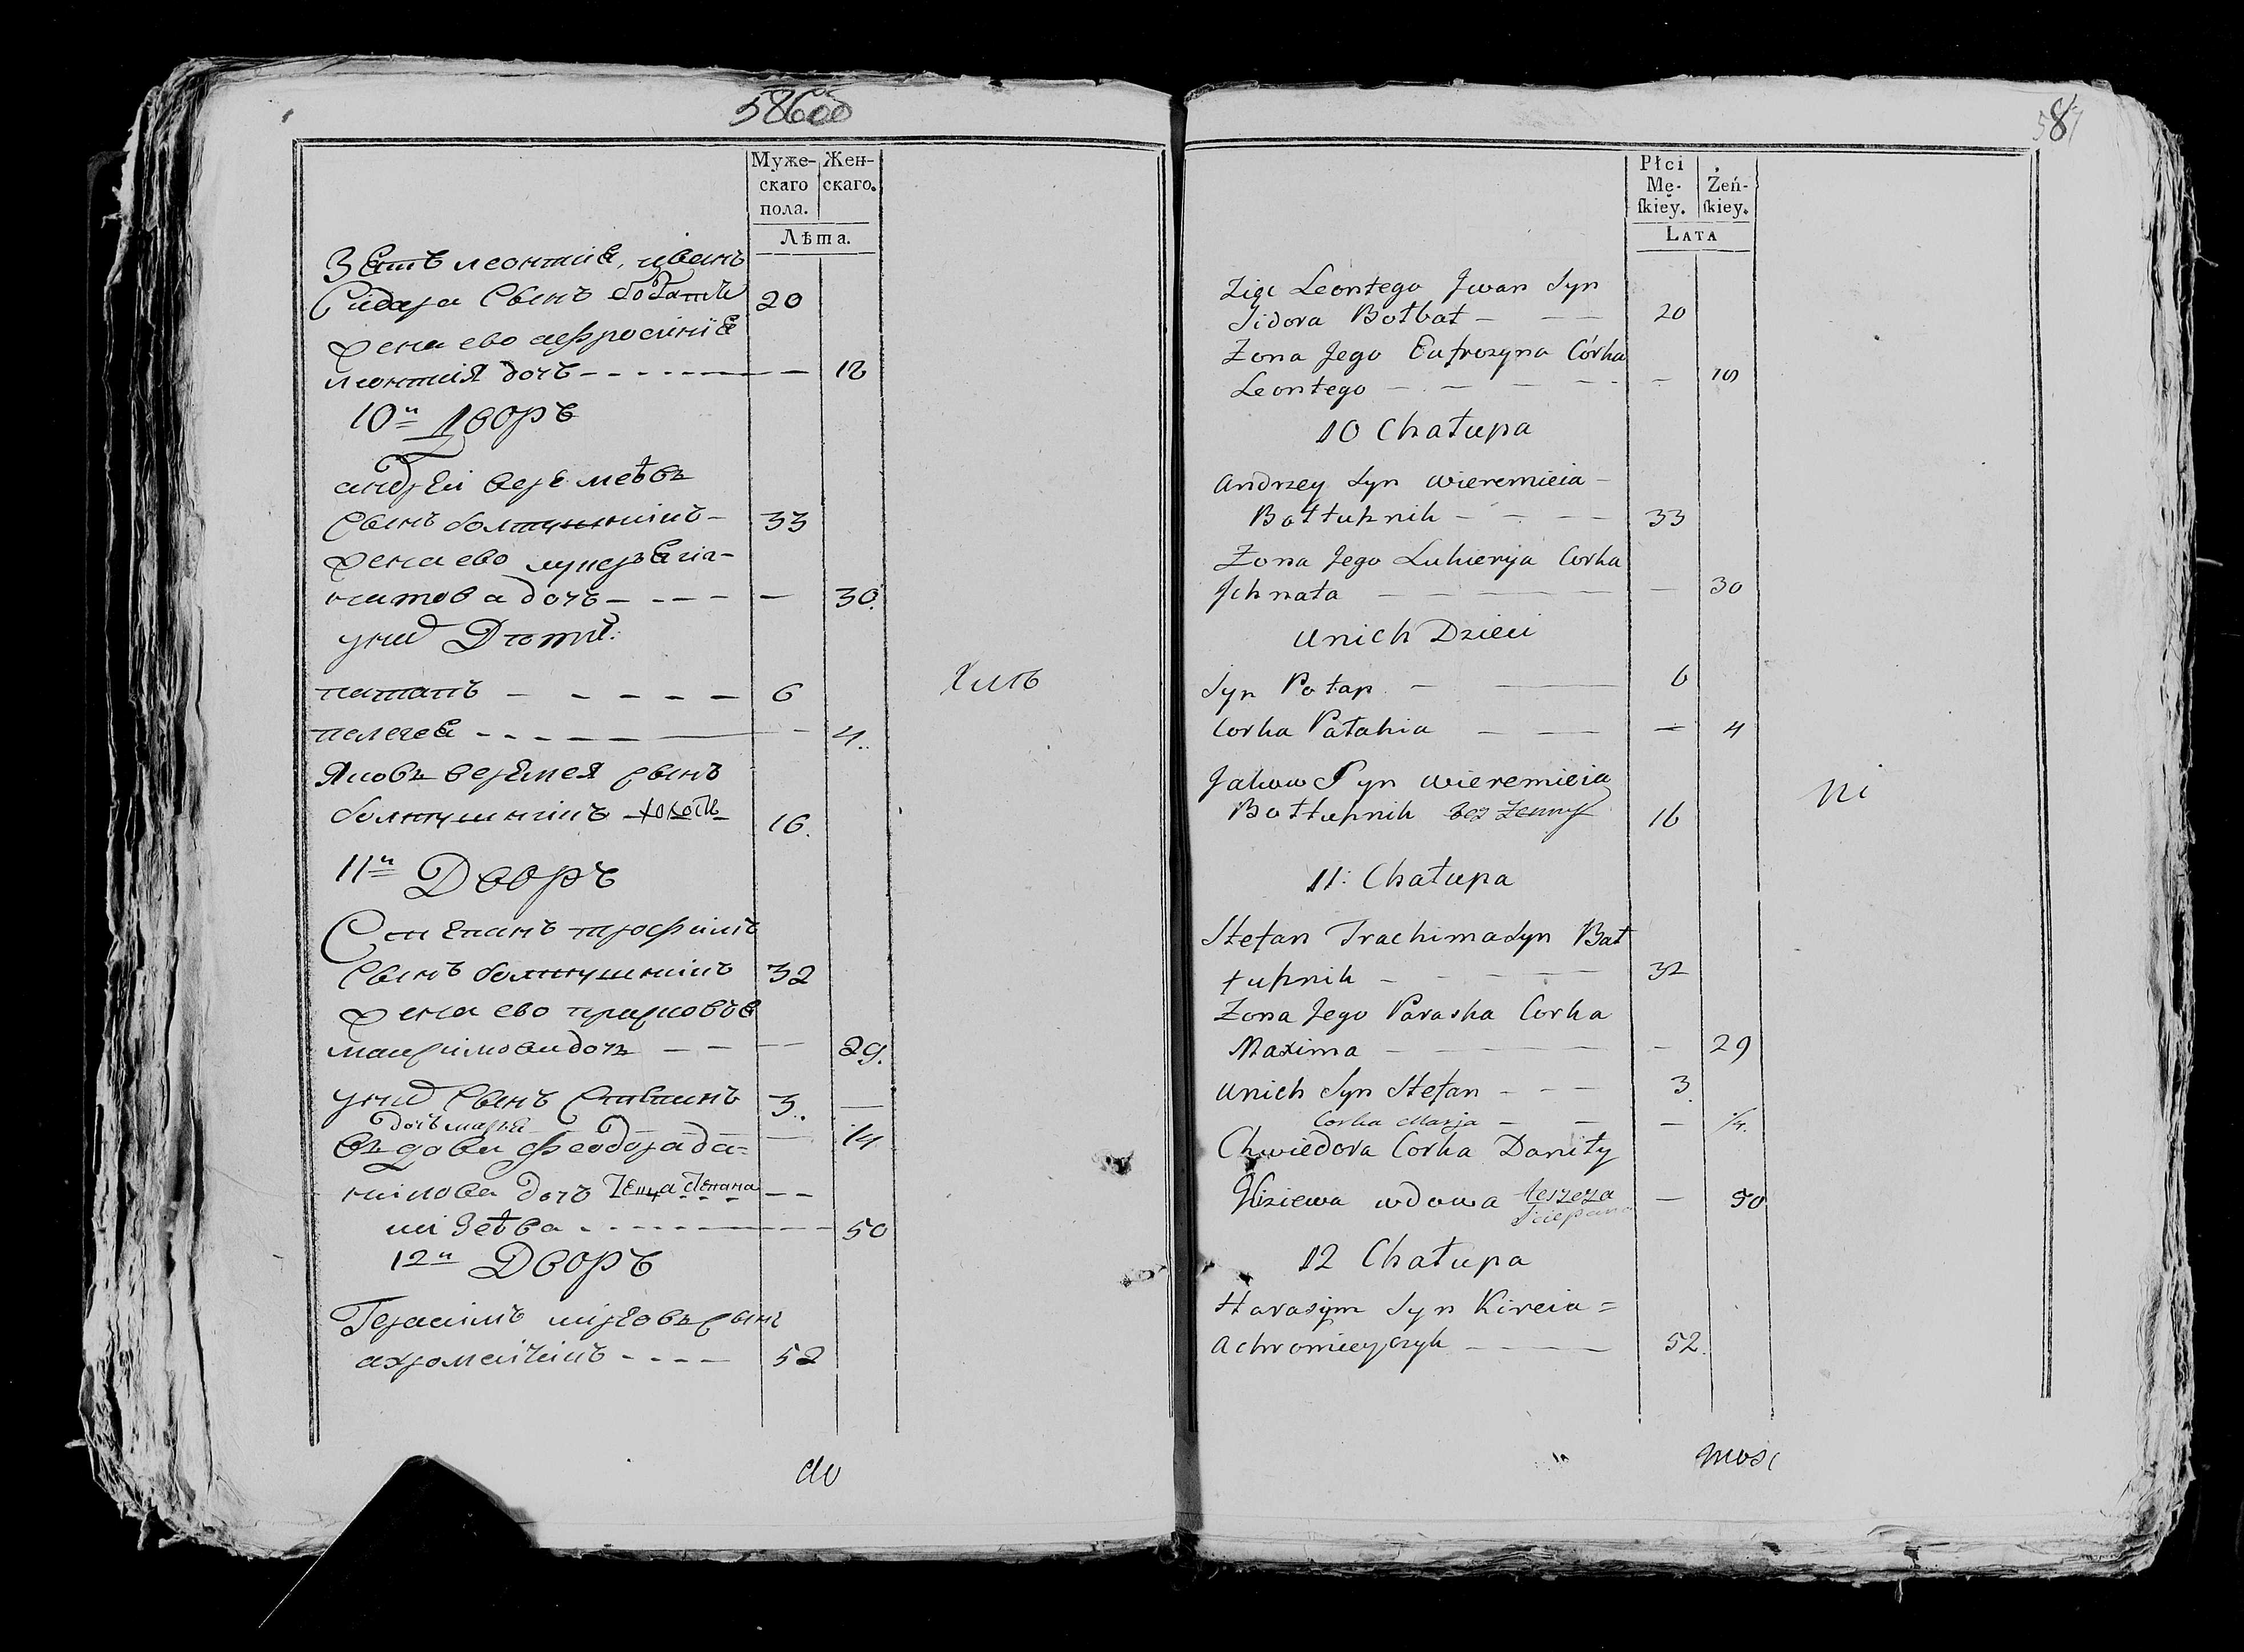 586об
Муже-
скаго
пола.
Жен-
скаго.
Лѣта.
Зять леонтия, иванъ
Сидора Сынъ 20
жена ево афросиния
леонтия дочь 18
10й Дворъ
андрей веремѣевъ
Сынъ болтушникъ 33
жена ево лукерья гна-
натова дочь 30.
у них Дети:
патапъ 6
пелагея 4.
Яковъ веремея сынъ
болтушникъ холост 16.
11й Дворъ
Степанъ трофимъ
Сынъ болтушникъ 32
жена ево
максимова дочь 29.
у них Сынъ Степанъ 3.
дочь марья 1/4
вдова феодора да-
нилова дочь теща степана
50
12й Дворъ
Герасимъ кирѣевъ сынъ
ахромейчикъ 52
do
587
Płci
Mę-
skiey.
Żeń-
skiey.
LATA
Zięc Leontego Jwan Syn
Sidora Bołbat 20
Zona Jego Eufrozyna Córka
Leontego 18
10 Chałupa
Andrzey Syn Wieremieia
Bołtuznik 33
Zona Jego Lukierya Corka
Jchnata 30
Unich Dzieci
Syn Potap 6
Corka Pałahia 4
Jakow Syn Wieremieia
Bołtuznik bez Zenny 16
11: Chałupa
Stefan Trachima Syn Boł
tuznik 32
Zona Jego Paraska Corka
Maxima 29
Unich Syn Stefan 3.
Corka Marja 1/4.
Chwiedora Corka Daniły
wdowa teszcza
Sciepana 50
12 Chałupa
Harasym Syn Kireia =
Achromieyczyk 52.
ni
mosc